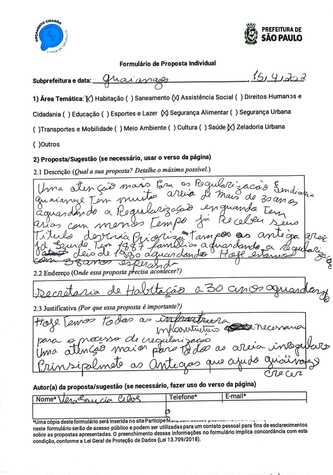 PREFEITURA DE
SÃO PAULO
Formulário de Proposta Individual
Subprefeitura e data: guaianazes 15/4/202
1) Área Temática: (X) Habitação ( ) Saneamento (X) Assistência Social ( ) Direitos Humanos e
Cidadania ( ) Educação ( ) Esportes e Lazer (X) Segurança Alimentar ( ) Segurança Urbana
( )Transportes e Mobilidade ( ) Meio Ambiente ( ) Cultura ( ) Saúde (X) Zeladoria Urbana
( )Outros
2) Proposta/Sugestão (se necessário, usar o verso da página)
2.1 Descrição (Qual a sua proposta? Detalhe o máximo possível.)
Uma atenção mais para as Regularização Fundiaria
guaianazes Tem muita areia a mais de 30 anos
aguardando a Regularização em quando Tem
arias com menos Tempo ja Receber seus
Titulo deveria Priorizar Tempos as antiga areia
Jd Tem familias aguardando a regulariz
deis de 1990 aguardando Hoje estamos
esperado
2.2 Endereço (Onde essa proposta precisa acontecer?)
Secretaria de Habitação a 30 anos aguardando
2.3 Justificativa (Por que essa proposta é importante?)
Hoje Temos Todas as
infraestrutura necessaria
para o processo de regularização
Uma atenção maior para Todas as areia irregulares
Prinsipalmente as Antigas que ajuda guaianazes
crecer
Autor(a) da proposta/sugestão (se necessário, fazer uso do verso da página)
Nome* Telefone* E-mail*
*Uma cópia deste formulário será inserida no site Participe
neste formulário serão de acesso público e podem ser utilizadas para um contato pessoal para fins de esclarecimentos
sobre as propostas apresentadas. O preenchimento dessas informações no formulário implica concordância com esta
condição, conforme a Lei Geral de Proteção de Dados (Lei 13.709/2018).